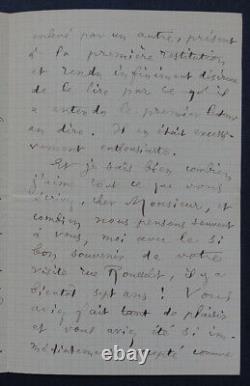 enlevé par un autre, présent
à la première restitution,
et rendu infiniment désireux
de le lire par ce qu'il
a entendu le premier
en dire. Il en était excessi-
vement enthousiaste.
Et je sais bien combien
j'aime tout ce que vous
écrivez, cher Monsieur, et
combien nous pensons souvent
à vous, moi avec le si
bon souvenir de votre
visite rue Rousselet, il y a
bientôt sept ans ! Vous
aviez fait tant de plaisir
et vous aviez été si im-
médiatement accepté comme